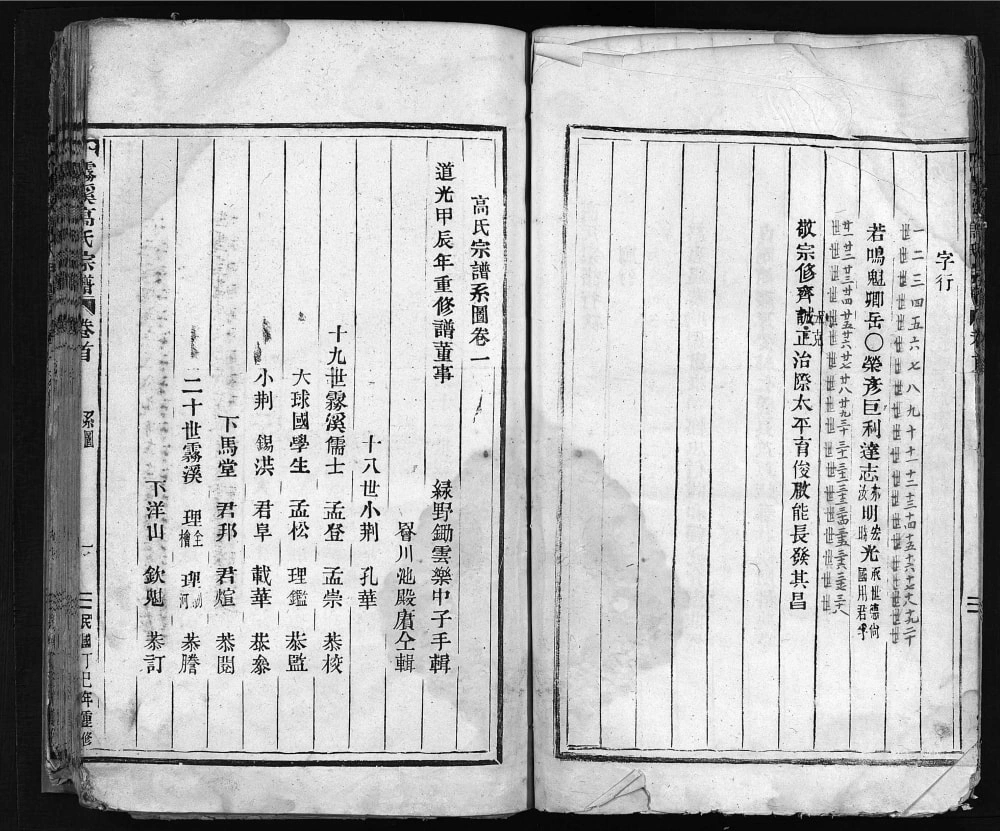 字行
一二三四五六七八九十十一十二十三十四十五十六十七十八十九二十
世世世世世世世世世世世世世世世世世世世世
若鳴魁卿岳〇榮彥巨利達志汝明宏光
廿一廿二廿三廿四廿五廿六廿七廿八廿九三十三一三二三三三四三五三六三七三八
世世世世世世世世世世世世世世世世世世
敬宗修齊誠正治際太平育俊啟能長發其昌
高氏宗譜系圖卷一
道光甲辰年重修譜董事
綠野鋤雲樂中子手輯
睿川池殿賡仝輯
十八世小荆 孔華
十九世霧溪儒士 孟登 孟崇 恭校
大球國學生 孟松 理鑑 恭監
小荆 錫洪 君阜 載華 恭參
下馬堂 君邦 君煊 恭閱
二十世霧溪 理全 理 恭謄
下洋山 欽魁 恭訂
霧溪高氏宗譜 卷首 系圖 一 民國丁巳年重修